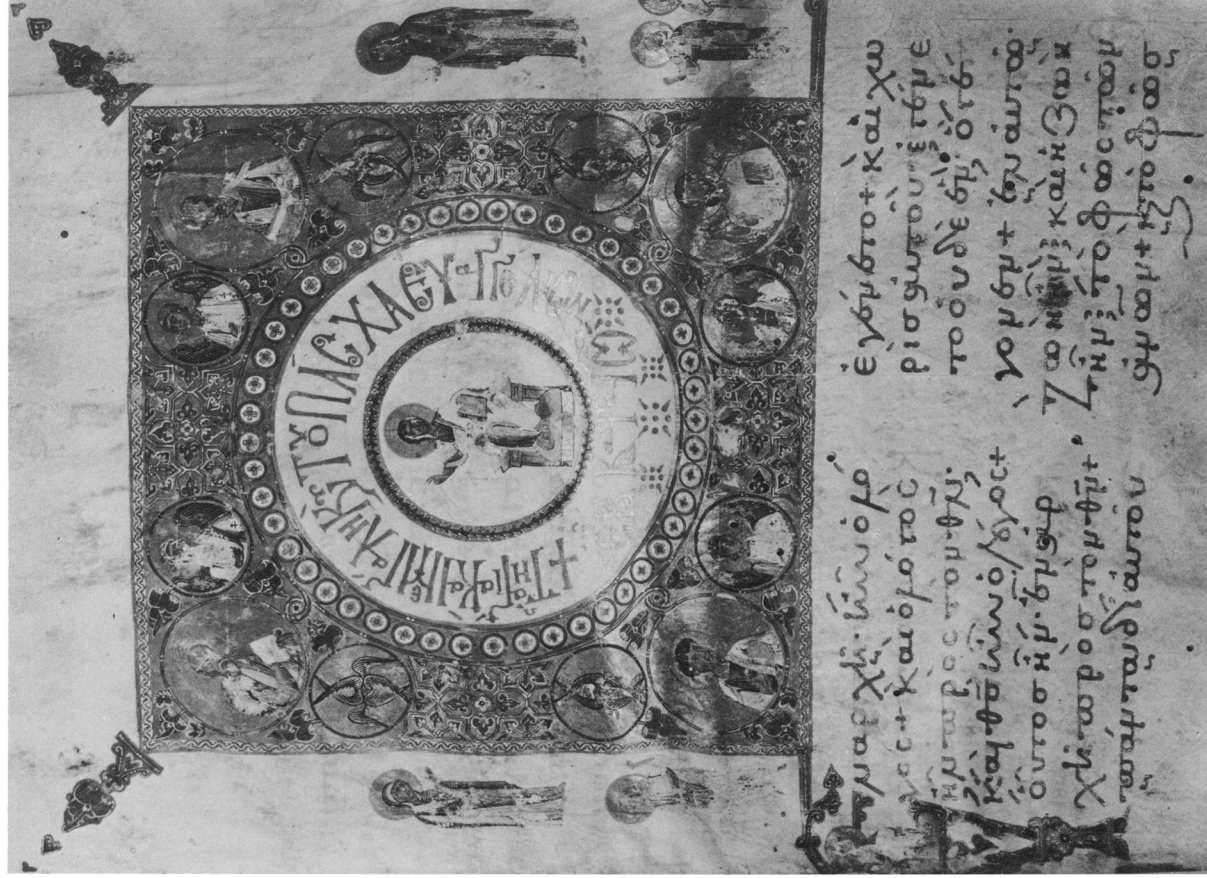 + ΤΗ ΑΓΙΑ Κ ΜΕΓΑΛΗ ΚΥ ΤΟΥ ΠΑΣΧΑ ΕΥΑΓΓΕΛΙΟΝ
Ἐν ἀρχῆ· ἦν ὁ λό
γος+ καὶ ὁ λόγος
ἦν πρὸς τὸν θν·
καὶ θς ἦν ὁ λόγος+
οὗτος ἦν ἐν ἀρ
χῆ πρὸς τὸν θν+
πάντα δι' αὐτοῦ
ἐγένετο+ καὶ χω
ρὶς αὐτοῦ ἐγένε
το οὐδὲ ἕν· ὃ γέ
γονεν+ ἐν αὐτῶ
ζωὴ ἦν· καὶ ἡ ζωὴ
ἦν τὸ φῶς τῶν
ἀνων+ καὶ τὸ φῶς